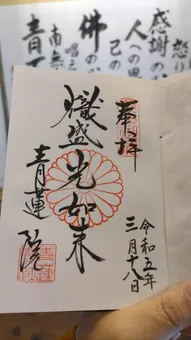 感謝の
人への
己の
佛の
南無
青
奉拝
令和五年
三月十八日
熾盛光如来
青蓮院